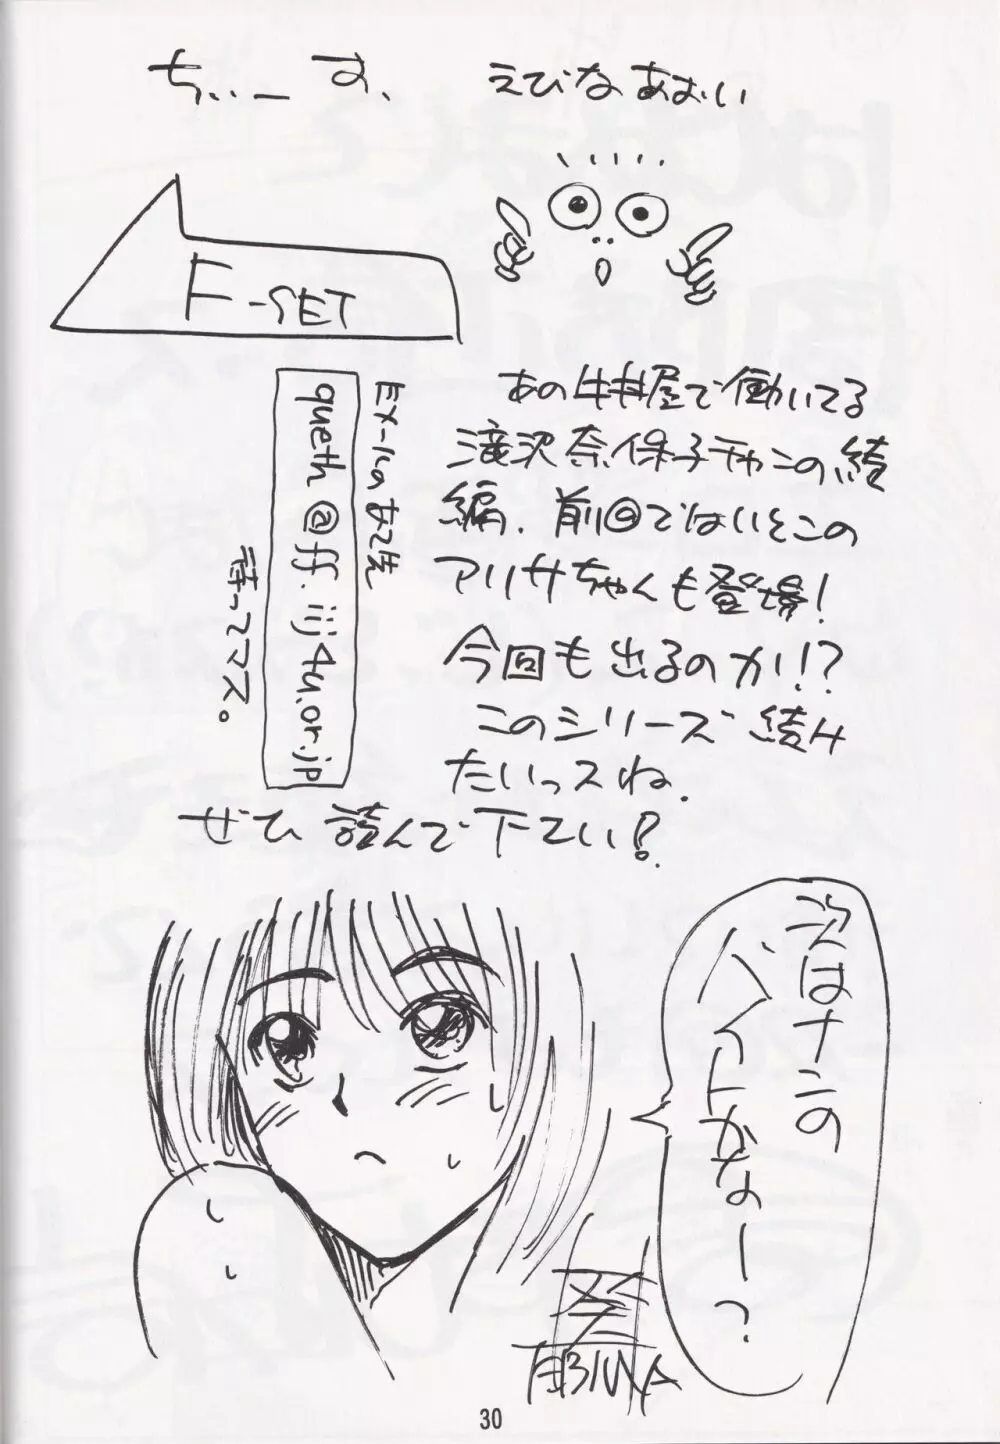 ちぃーす、
えびなあおい
F-SET
あの牛丼屋で働いてる
滝沢奈保子チャンの続
編. 前回ではいとこの
アリサちゃんも登場!
今回も出るのか!?
このシリーズ続け
たいっスね.
EX-Mailのあて先
queth@ff.iij4u.or.jp
待ってマス。
ぜひ読んで下さい!
次はナンの
バイトかなー?
30